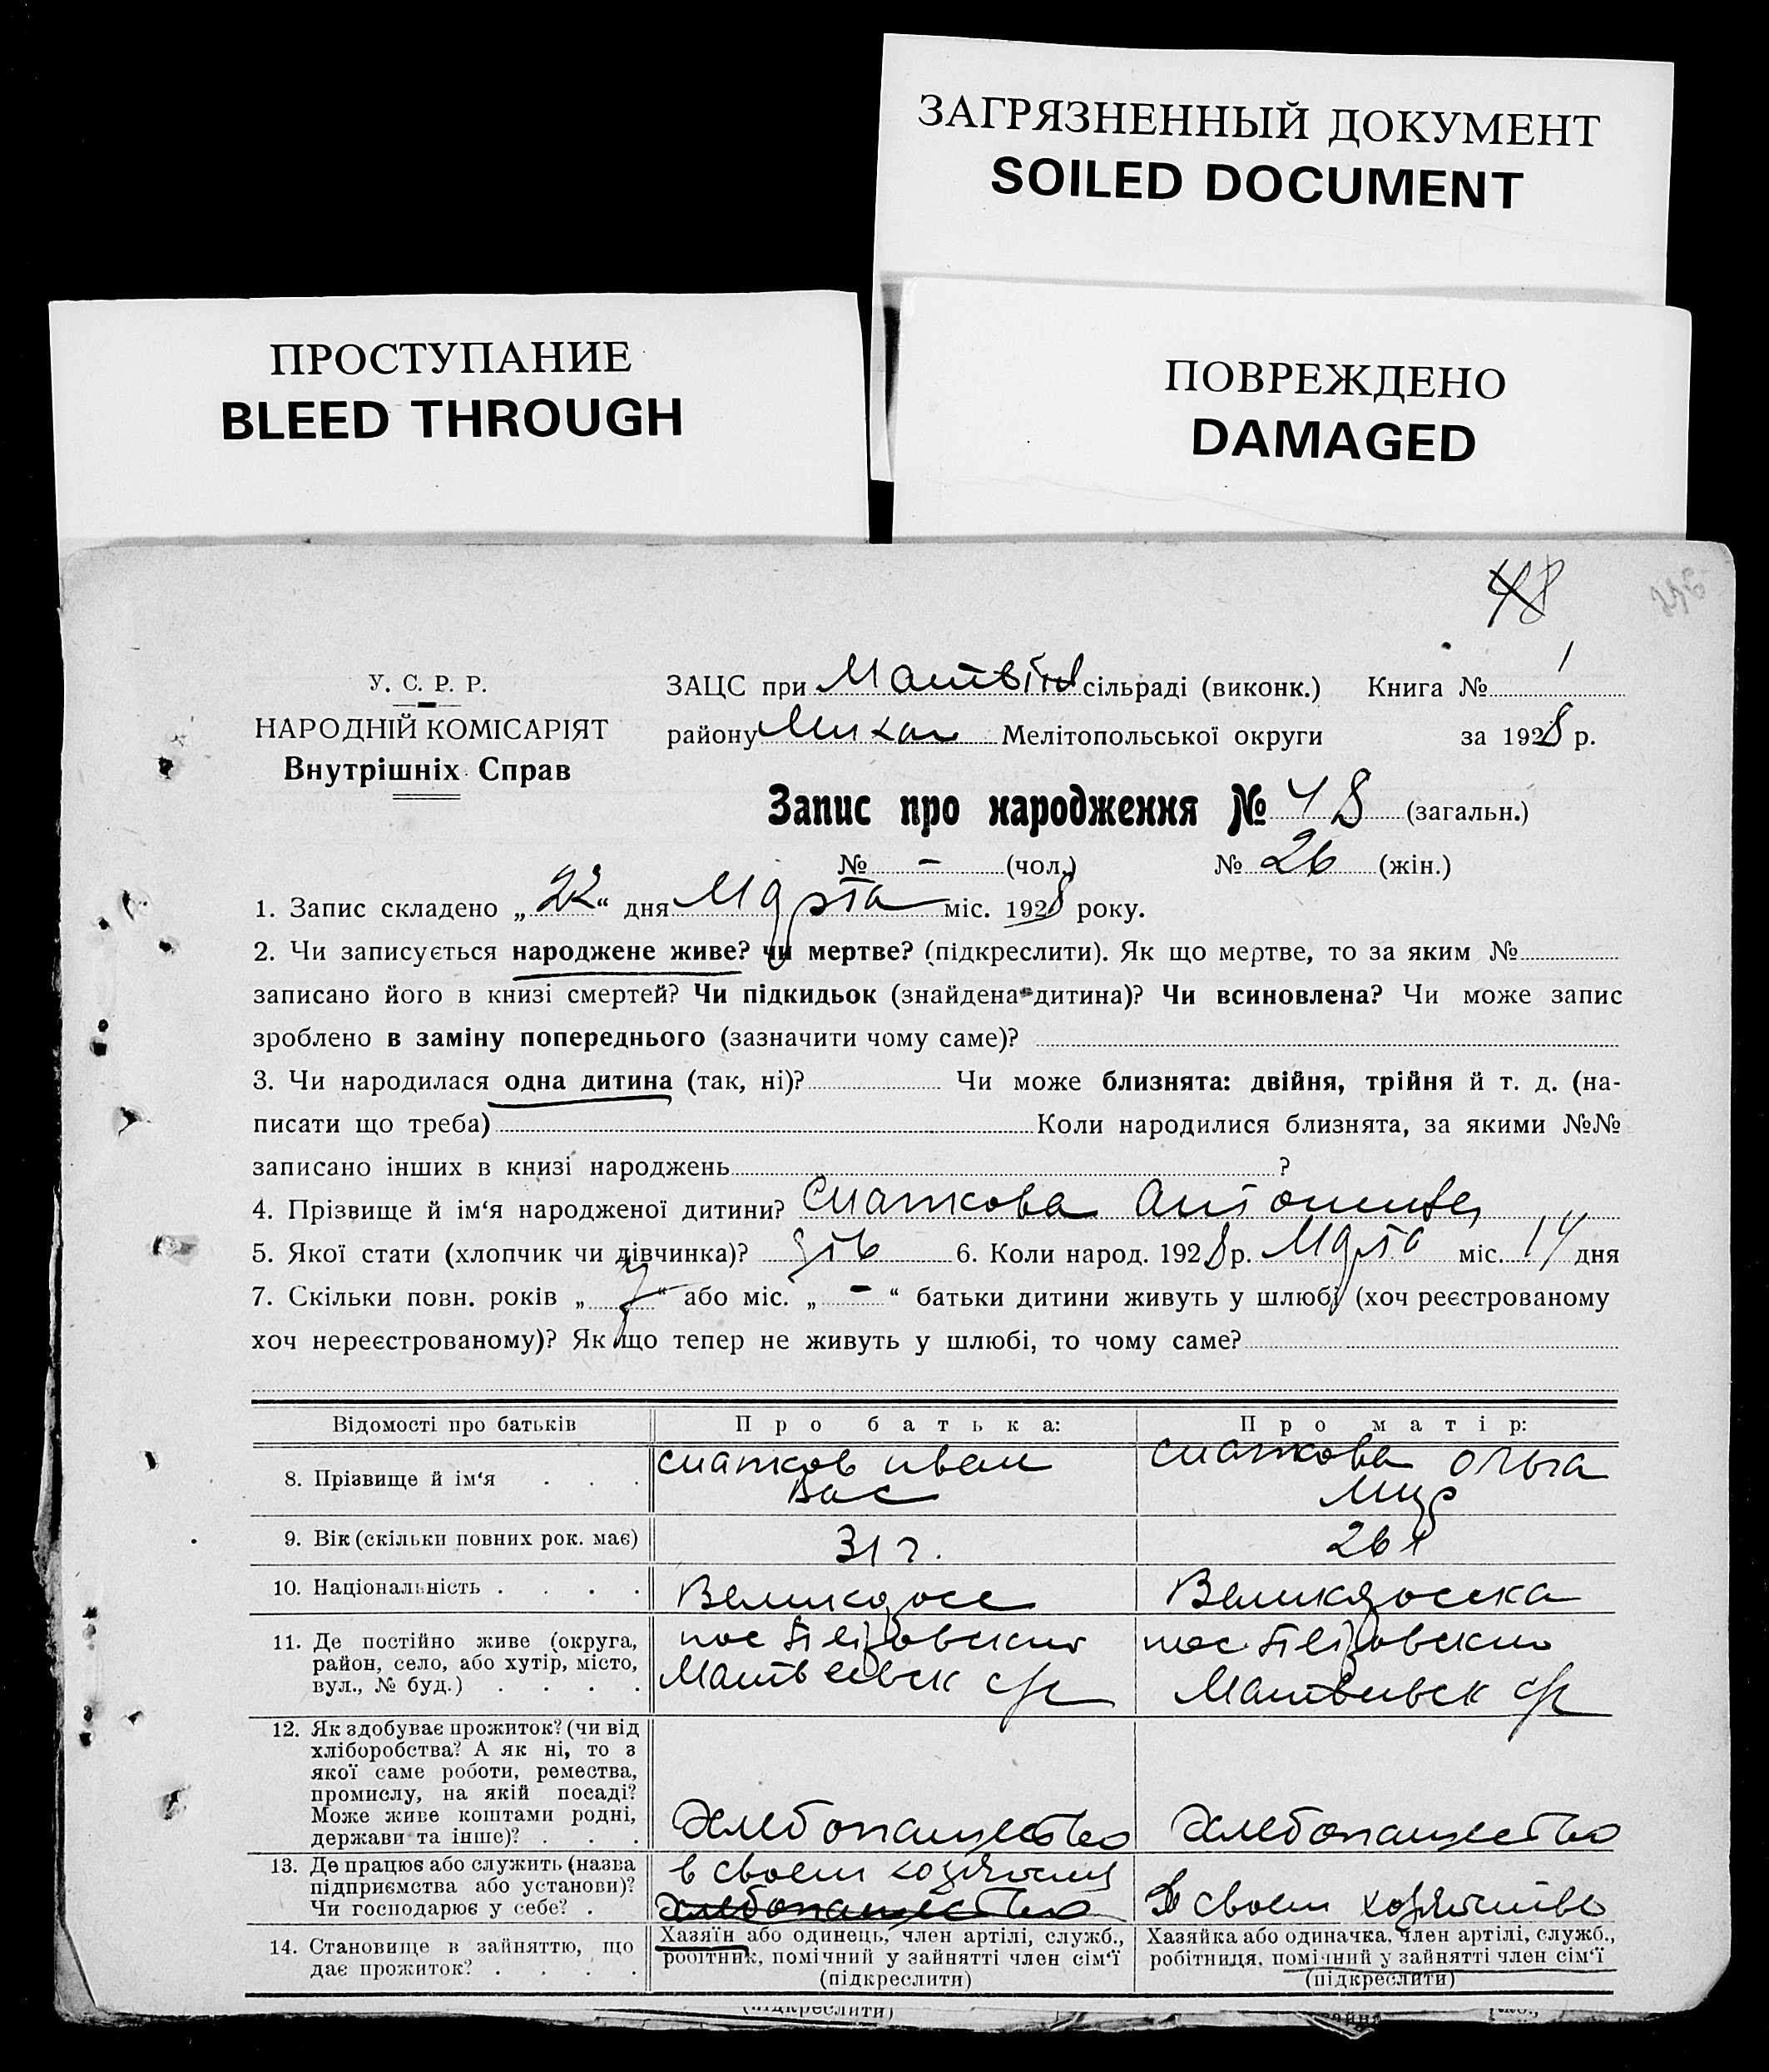 ЗАГРЯЗНЕННЫЙ ДОКУМЕНТ
SOILED DOCUMENT
ПРОСТУПАНИЕ
BLEED THROUGH
ПОВРЕЖДЕНО
DAMAGED
48
У. С. Р. Р.
НАРОДНІЙ КОМІСАРІЯТ
Внутрішніх Справ
ЗАЦС при сільраді (виконк.) Книга № 1
району Мелітопольської округи за 1928 р.
Запис про народження № 48 (загальн.)
№ - (чол.) № 26 (жін.)
1. Запис складено „22“ дня Марта міс. 1928 року.
2. Чи записується народжене живе? чи мертве? (підкреслити). Як що мертве, то за яким №
записано його в книзі смертей? Чи підкидьок (знайдена дитина)? Чи всиновлена? Чи може запис
зроблено в заміну попереднього (зазначити чому саме)?
3. Чи народилася одна дитина (так, ні)? Чи може близнята: двійня, трійня й т. д. (на-
писати що треба) Коли народилися близнята, за якими №№
записано інших в книзі народжень ?
4. Прізвище й ім‘я народженої дитини?
5. Якої стати (хлопчик чи дівчинка)? 6. Коли народ. 1928 р. Марта міс. 14 дня
7. Скільки повн. років „7“ або міс. „-“ батьки дитини живуть у шлюбі (хоч реєстрованому
хоч нереєстрованому)? Як що тепер не живуть у шлюбі, то чому саме?
Відомості про батьків Про батька: Про матір:
8. Прізвище й ім‘я Иван Ольга
Вас
9. Вік (скільки повних рок. має) 31 г. 26 г
10. Національність Великоросс Великоросска
11. Де постійно живе (округа, пос пос
район, село, або хутір, місто, Матвеевск с/с Матвеевск с/с
вул., № буд.)
12. Як здобуває прожиток? (чи від
хліборобства? А як ні, то з
якої саме роботи, ремества,
промислу, на якій посаді?
Може живе коштами родні,
держави та інше)? Хлебопашество Хлебопашество
13. Де працює або служить (назва в своем
підприємства або установи)?
Чи господарює у себе? Хлебопашество В своем хозяйстве
14. Становище в зайняттю, що Хазяїн або одинець, член артілі, служб., Хазяйка або одиначка, член артілі, служб.,
дає прожиток? робітник, помічний у зайнятті член сім‘ї робітниця, помічний у зайнятті член сім‘ї
(підкреслити) (підкреслити)
(підкреслити)